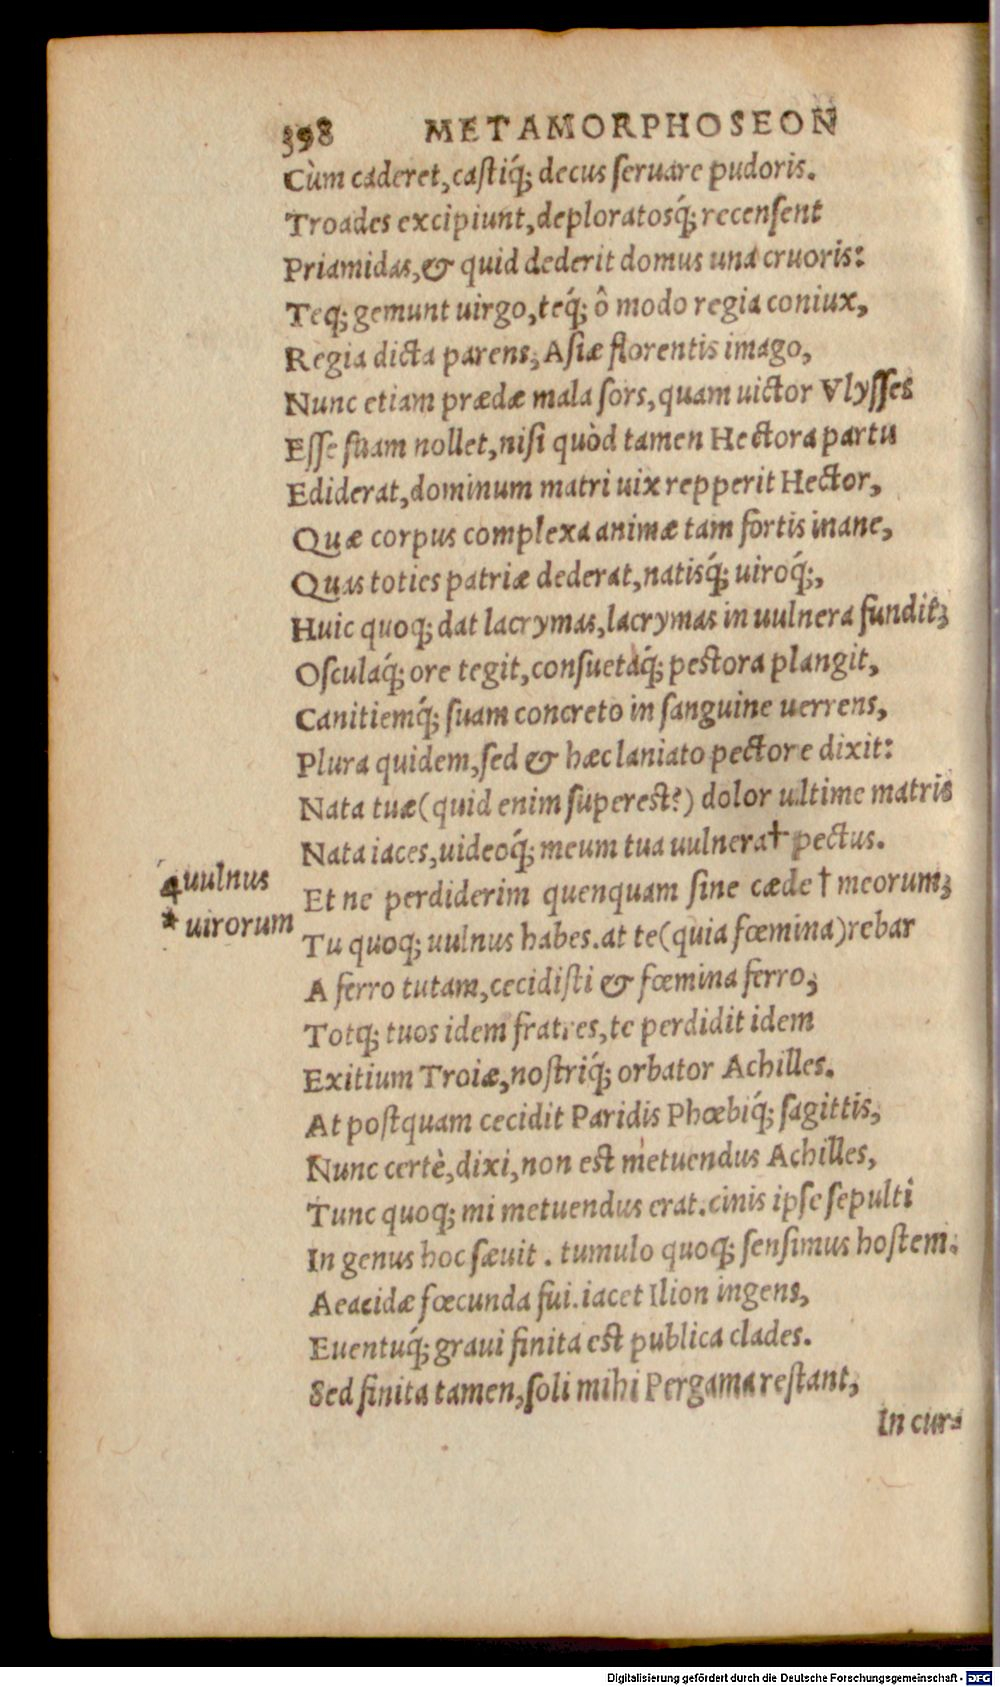 398 METAMORPHOSEON
Cùm caderet, castiq́; decus seruare pudoris.
Troades excipiunt, deploratosq́; recensent
Priamidas, & quid dederit domus una cruoris:
Teq; gemunt uirgo, teq́; ô modo regia coniux,
Regia dicta parens, Asiæ florentis imago,
Nunc etiam prædæ mala sors, quam uictor Vlysses
Esse suam nollet, nisi quòd tamen Hectora partu
Ediderat, dominum matri uix repperit Hector,
Quæ corpus complexa animæ tam fortis inane,
Quas toties patriæ dederat, natisq́; uiroq́;,
Huic quoq; dat lacrymas, lacrymas in uulnera fundit;
Osculaq́; ore tegit, consuetaq́; pectora plangit,
Canitiemq́; suam concreto in sanguine uerrens,
Plura quidem, sed & hæc laniato pectore dixit:
Nata tuæ (quid enim superest?) dolor ultime matris
Nata iaces, uideoq́; meum tua uulnera † pectus.
Et ne perdiderim quenquam sine cæde † meorum;
Tu quoq; uulnus habes. at te (quia fœmina) rebar
A ferro tutam, cecidisti & fœmina ferro;
Totq; tuos idem fratres, te perdidit idem
Exitium Troiæ, nostriq́; orbator Achilles.
At postquam cecidit Paridis Phœbiq́; sagittis,
Nunc certè, dixi, non est metuendus Achilles,
Tunc quoq; mi metuendus erat. cinis ipse sepulti
In genus hoc sæuit. tumulo quoq; sensimus hostem.
Aeacidæ fœcunda fui. iacet Ilion ingens,
Euentuq́; graui finita est publica clades.
Sed finita tamen, soli mihi Pergama restant,
In cur-
uulnus
* uirorum
Digitalisierung gefördert durch die Deutsche Forschungsgemeinschaft - DFG